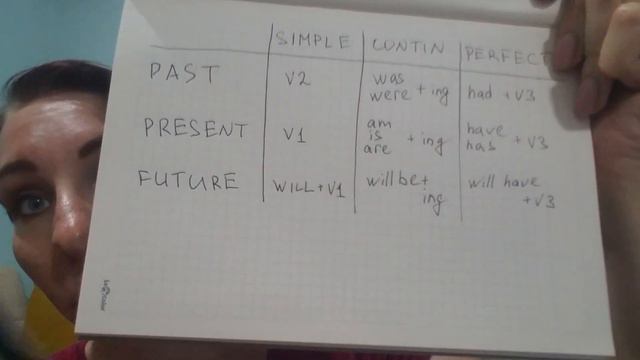 SIMPLE CONTIN PERFECT
PAST V2 was were + ing had + V3
PRESENT V1 am is are + ing have has + V3
FUTURE WILL + V1 will be + ing will have + V3